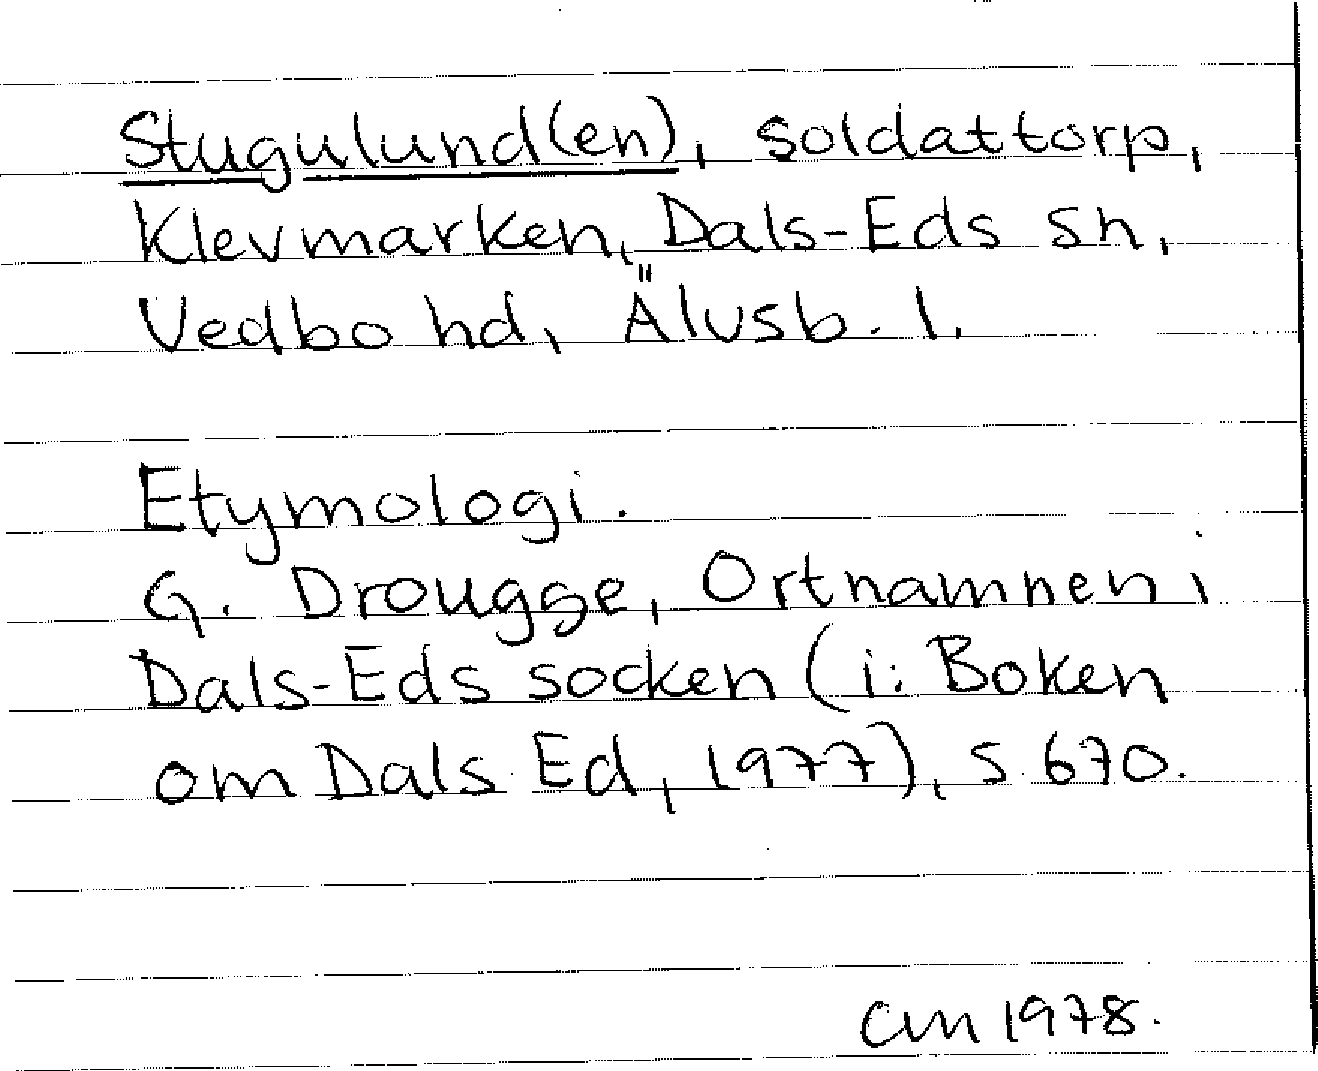 Stugulund(en), soldattorp,
Klevmarken, Dals-Eds sn,
Vedbo hd, Älvsb. l.
Etymologi.
G. Drougge, Ortnamnen i
Dals-Eds socken (i: Boken
om Dals Ed, 1977), s. 670.
CM 1978.